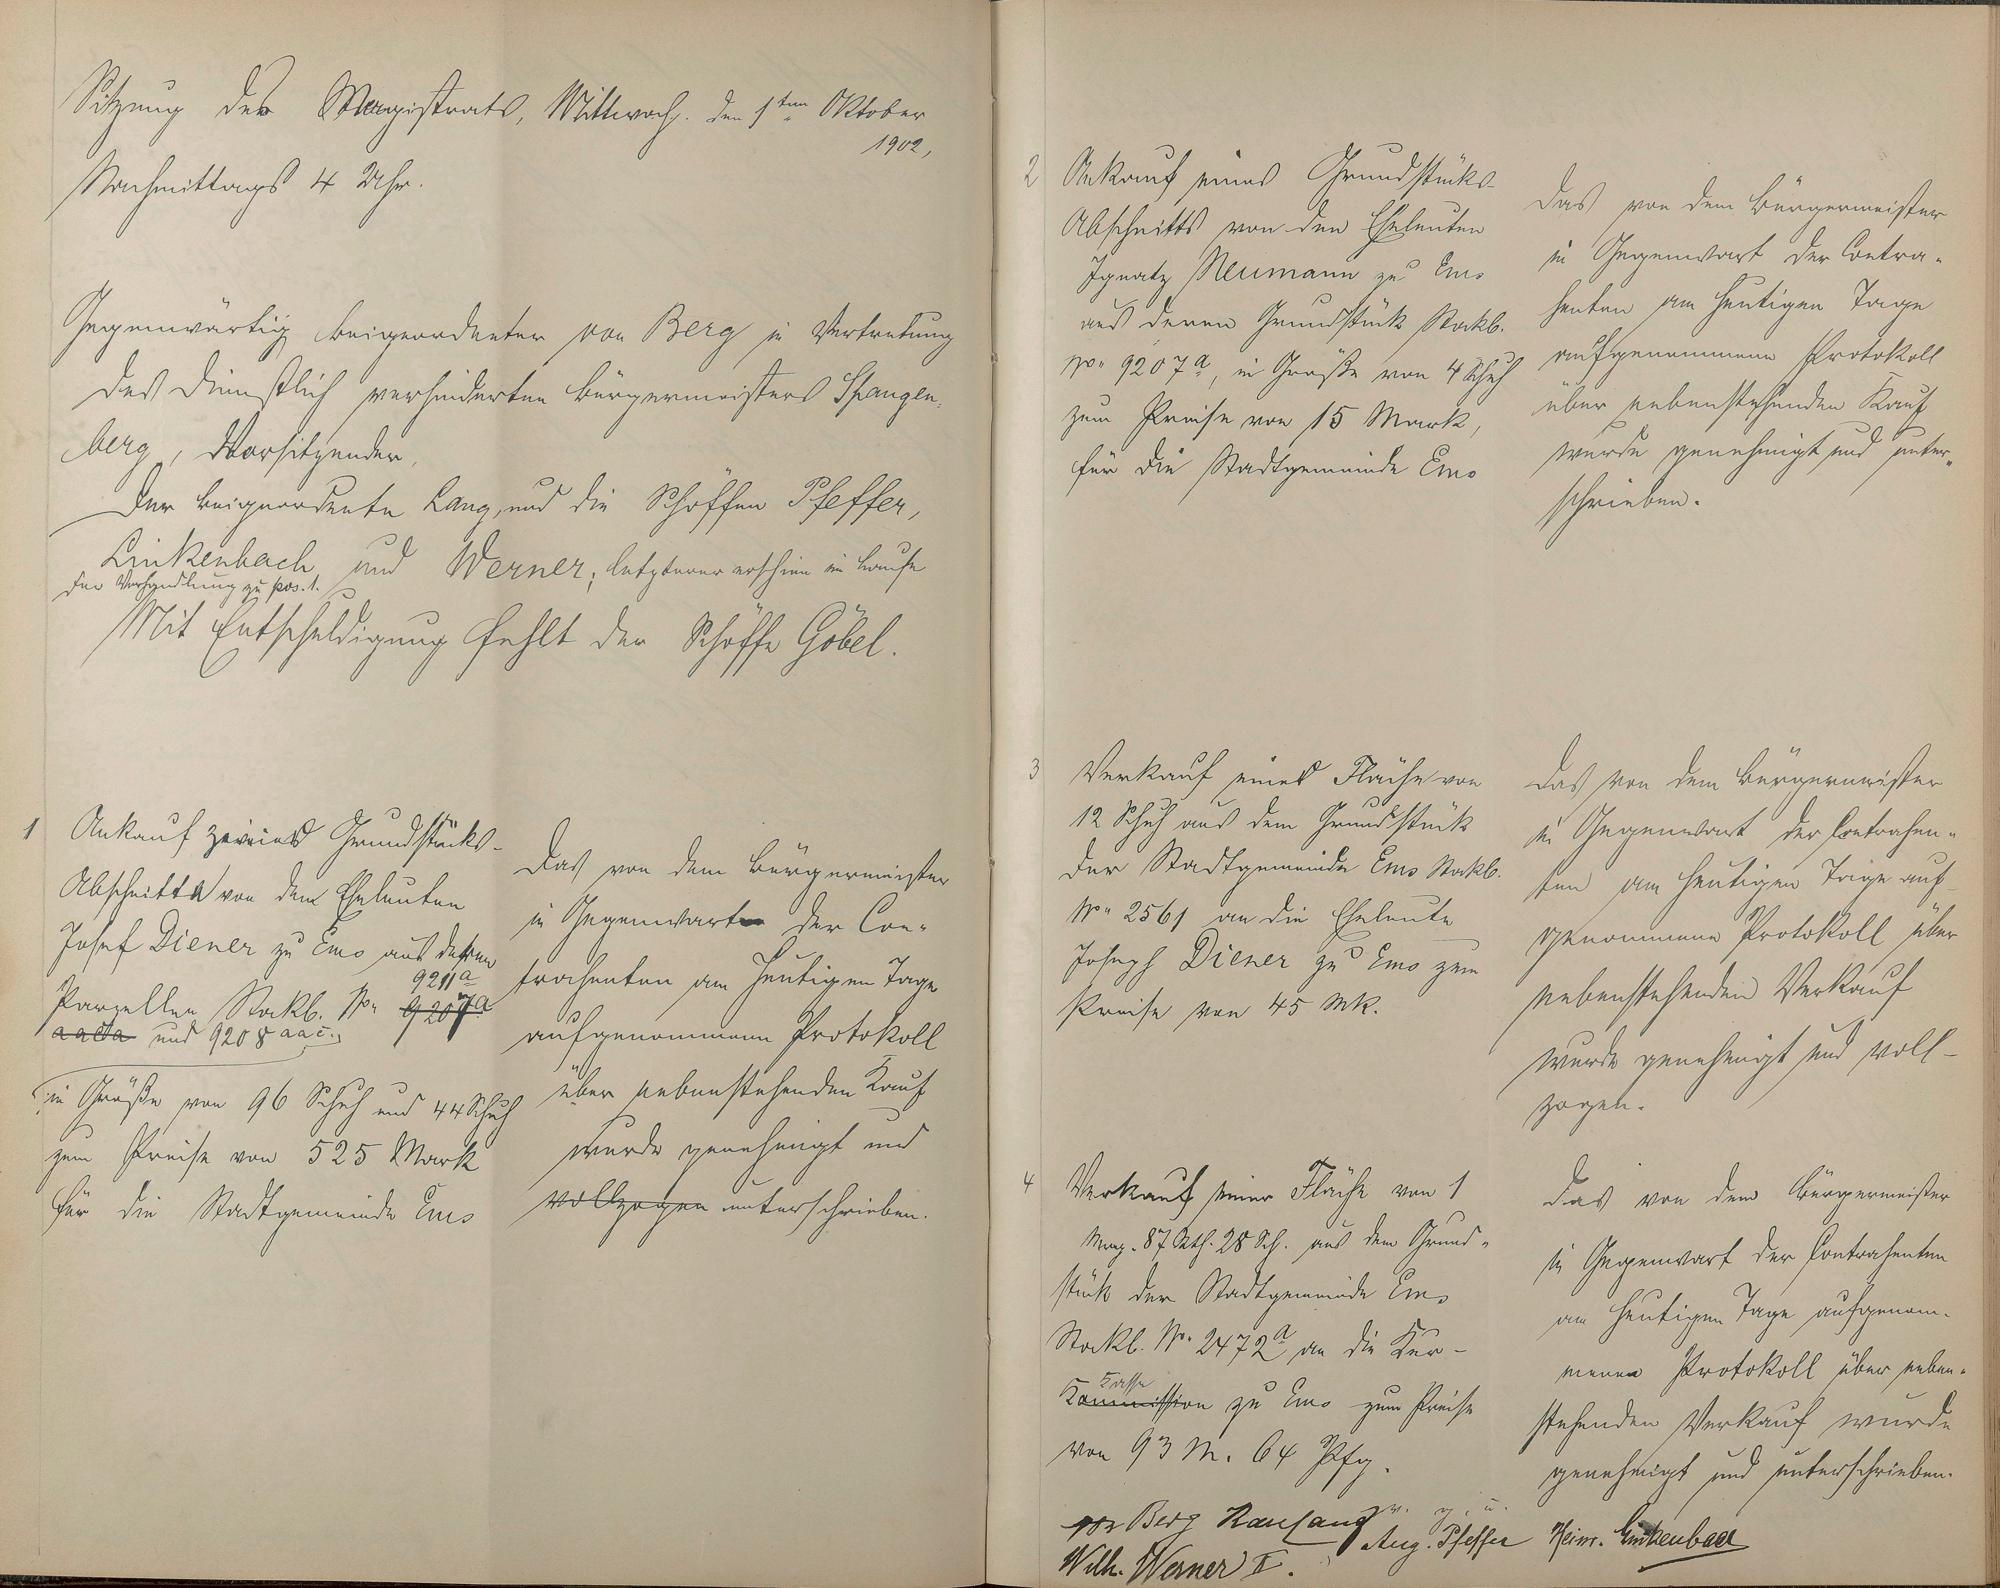 Sitzung des Magistrats, Mittwoch, den 1ten Oktober
1902,
Nachmittags 4 Uhr.
Gegenwärtig Beigeordneter von Berg in Vertretung
des dienstlich verhinderten Bürgermeisters Spangen-
berg, Vorsitzender,
Der Beigeordnete Lang, und die Schöffen Pfeffer,
Linkenbach und Werner; letzterer erschien im Laufe
der Verhandlung zu pos. 1.
Mit Entschuldigung fehlt der Schöffe Göbel.
1 Ankauf zweier Grundstücks-
Abschnitte von den Eheleuten
Josef Diener zu Ems aus deren
9211a
Parzellen Stockb. No. 9207a
aacta und 9208 aac.,
in Größe von 96 Schuh und 44 Schuh
zum Preise von 525 Mark
für die Stadtgemeinde Ems
Das von dem Bürgermeister
in Gegenwart der Con-
trahenten am heutigen Tage
aufgenommene Protokoll
über nebenstehenden Kauf
wurde genehmigt und
vollzogen unterschrieben.
2 Ankauf eines Grundstücks-
Abschnitts von den Eheleuten
Ignatz Neumann zu Ems
aus deren Grundstück Stockb.
No. 9207a, in Größe von 4 Schuh
zum Preise von 15 Mark,
für die Stadtgemeinde Ems
Das von dem Bürgermeister
in Gegenwart der Contra-
henten am heutigen Tage
aufgenommene Protokoll
über nebenstehenden Kauf
wurde genehmigt und unter-
schrieben.
3 Verkauf einer Fläche von
12 Schuh aus dem Grundstück
der Stadtgemeinde Ems Stockb.
No. 2561 an die Eheleute
Joseph Diener zu Ems zum
Preise von 45 Mk.
Das von dem Bürgermeister
in Gegenwart der Contrahen-
ten am heutigen Tage auf-
genommene Protokoll über
nebenstehenden Verkauf
wurde genehmigt und voll-
zogen.
4 Verkauf einer Fläche von 1
Mrg. 87 Rth. 28 Sch. aus dem Grund-
stück der Stadtgemeinde Ems
Stockb. No. 2472a an die Kur-
Kasse
Kommission zu Ems zum Preise
von 93 M. 64 Pfg.
Das von dem Bürgermeister
in Gegenwart der Contrahenten
am heutigen Tage aufgenom-
mene Protokoll über neben-
stehenden Verkauf wurde
genehmigt und unterschrieben.
v. g. u.
von Berg Aug. Pfeffer Heinr. Linkenbach
Wilh. Werner II.